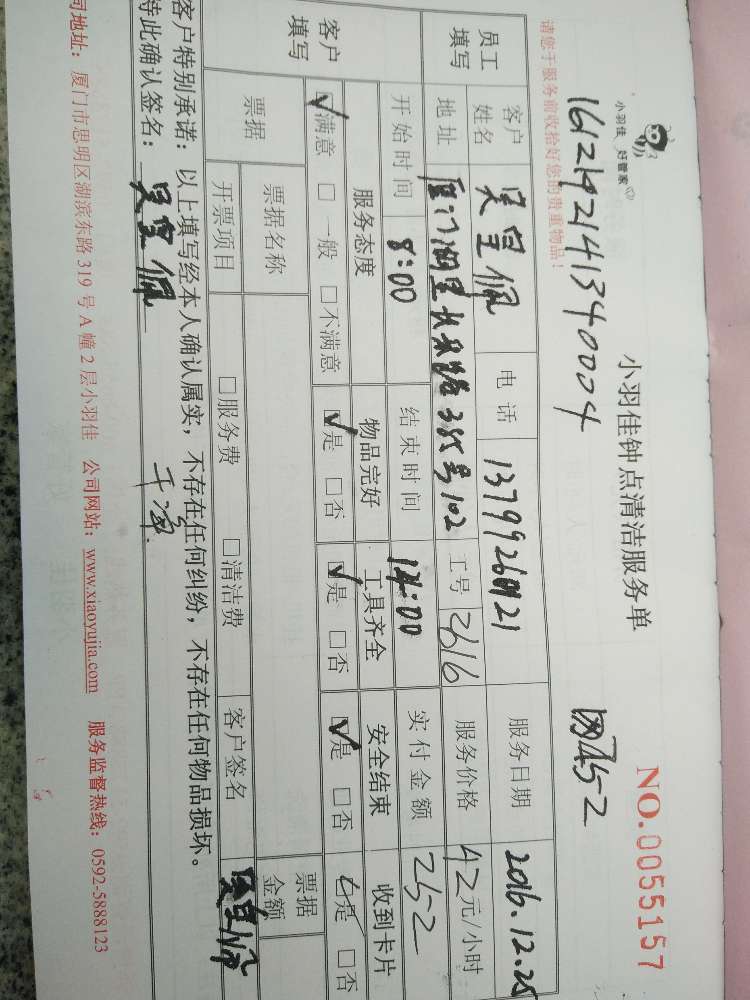 小羽佳 好管家
小羽佳钟点清洁服务单
NO.0055157
1612192141340004
请您于服务前收拾好您的贵重物品!
员工填写
客户姓名 吴皇佩 电话 服务日期 2016.12.25
地址 385号102 工号 2616 服务价格 42元/小时
开始时间 8:00 结束时间 14:00 实付金额 252
客户填写
服务态度 物品完好 工具齐全 安全结束 收到卡片
☑满意 □一般 □不满意 ☑是 □否 ☑是 □否 ☑是 □否 □是 □否
票据 票据名称 票据金额
开票项目 □服务费 □清洁费 客户签名 吴皇佩
客户特别承诺:以上填写经本人确认属实,不存在任何纠纷,不存在任何物品损坏。
特此确认签名:吴皇佩 干净
司地址:厦门市思明区湖滨东路319号A幢2层小羽佳 公司网站:www.xiaoyujia.com 服务监督热线:0592-5888123